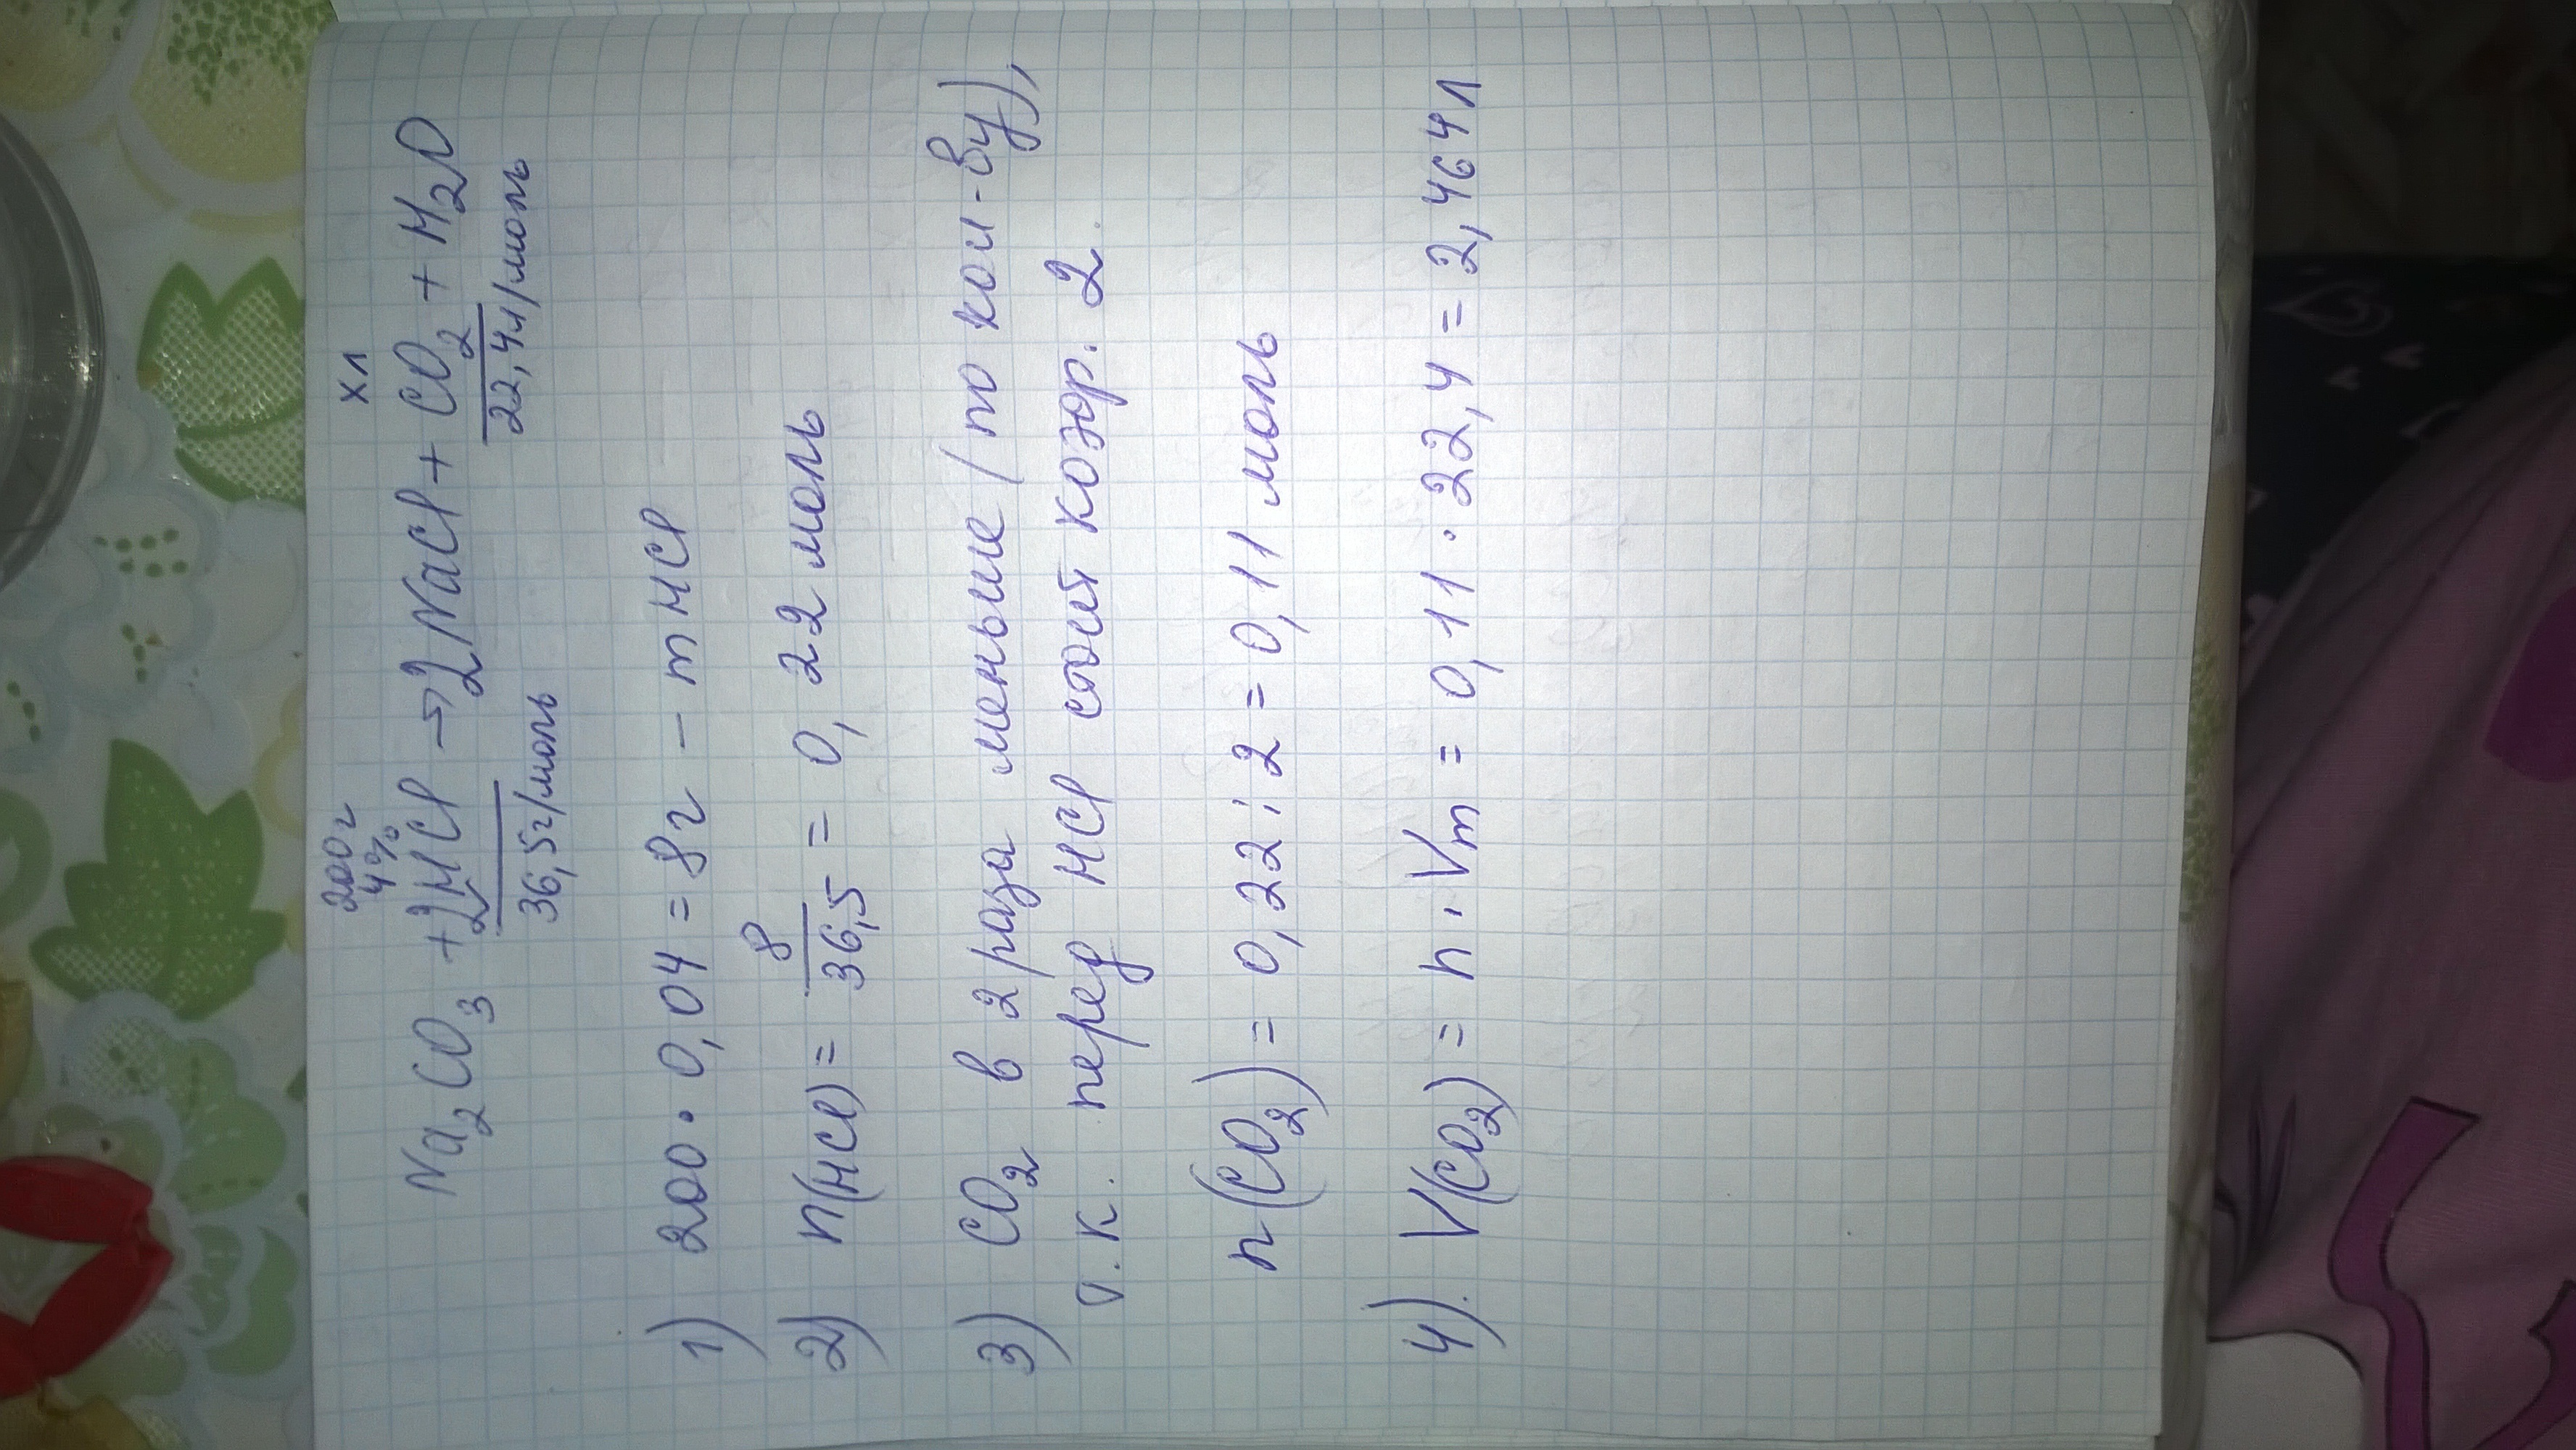 200г хл
4%
Na2CO3 + 2HCl → 2NaCl + CO2 + H2O
36,5г/моль 22,4л/моль
1) 200 · 0,04 = 8г – m HCl
2) n(HCl) = 8/36,5 = 0,22 моль
3) CO2 в 2 раза меньше (по кол-ву),
т.к. перед HCl стоит коэф. 2.
n(CO2) = 0,22 : 2 = 0,11 моль
4). V(CO2) = n · Vm = 0,11 · 22,4 = 2,464л